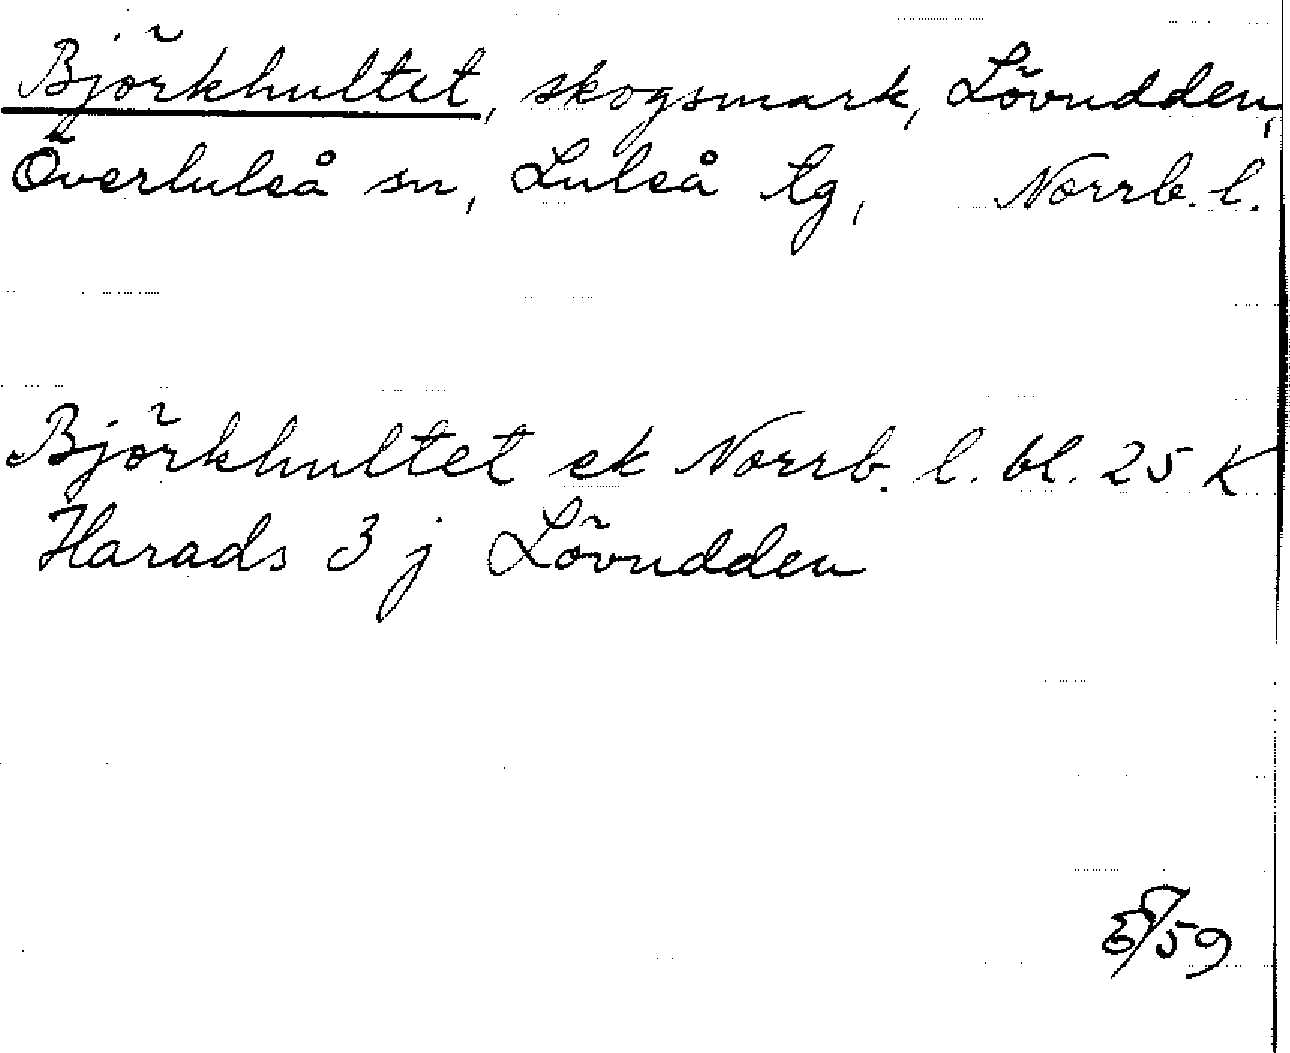 Björkhultet, skogsmark, Lövudden,
Överluleå sn, Luleå tg, Norrb. l.
Björkhultet ek Norrb. l. bl. 25 K
Harads 3 j Lövudden
/59